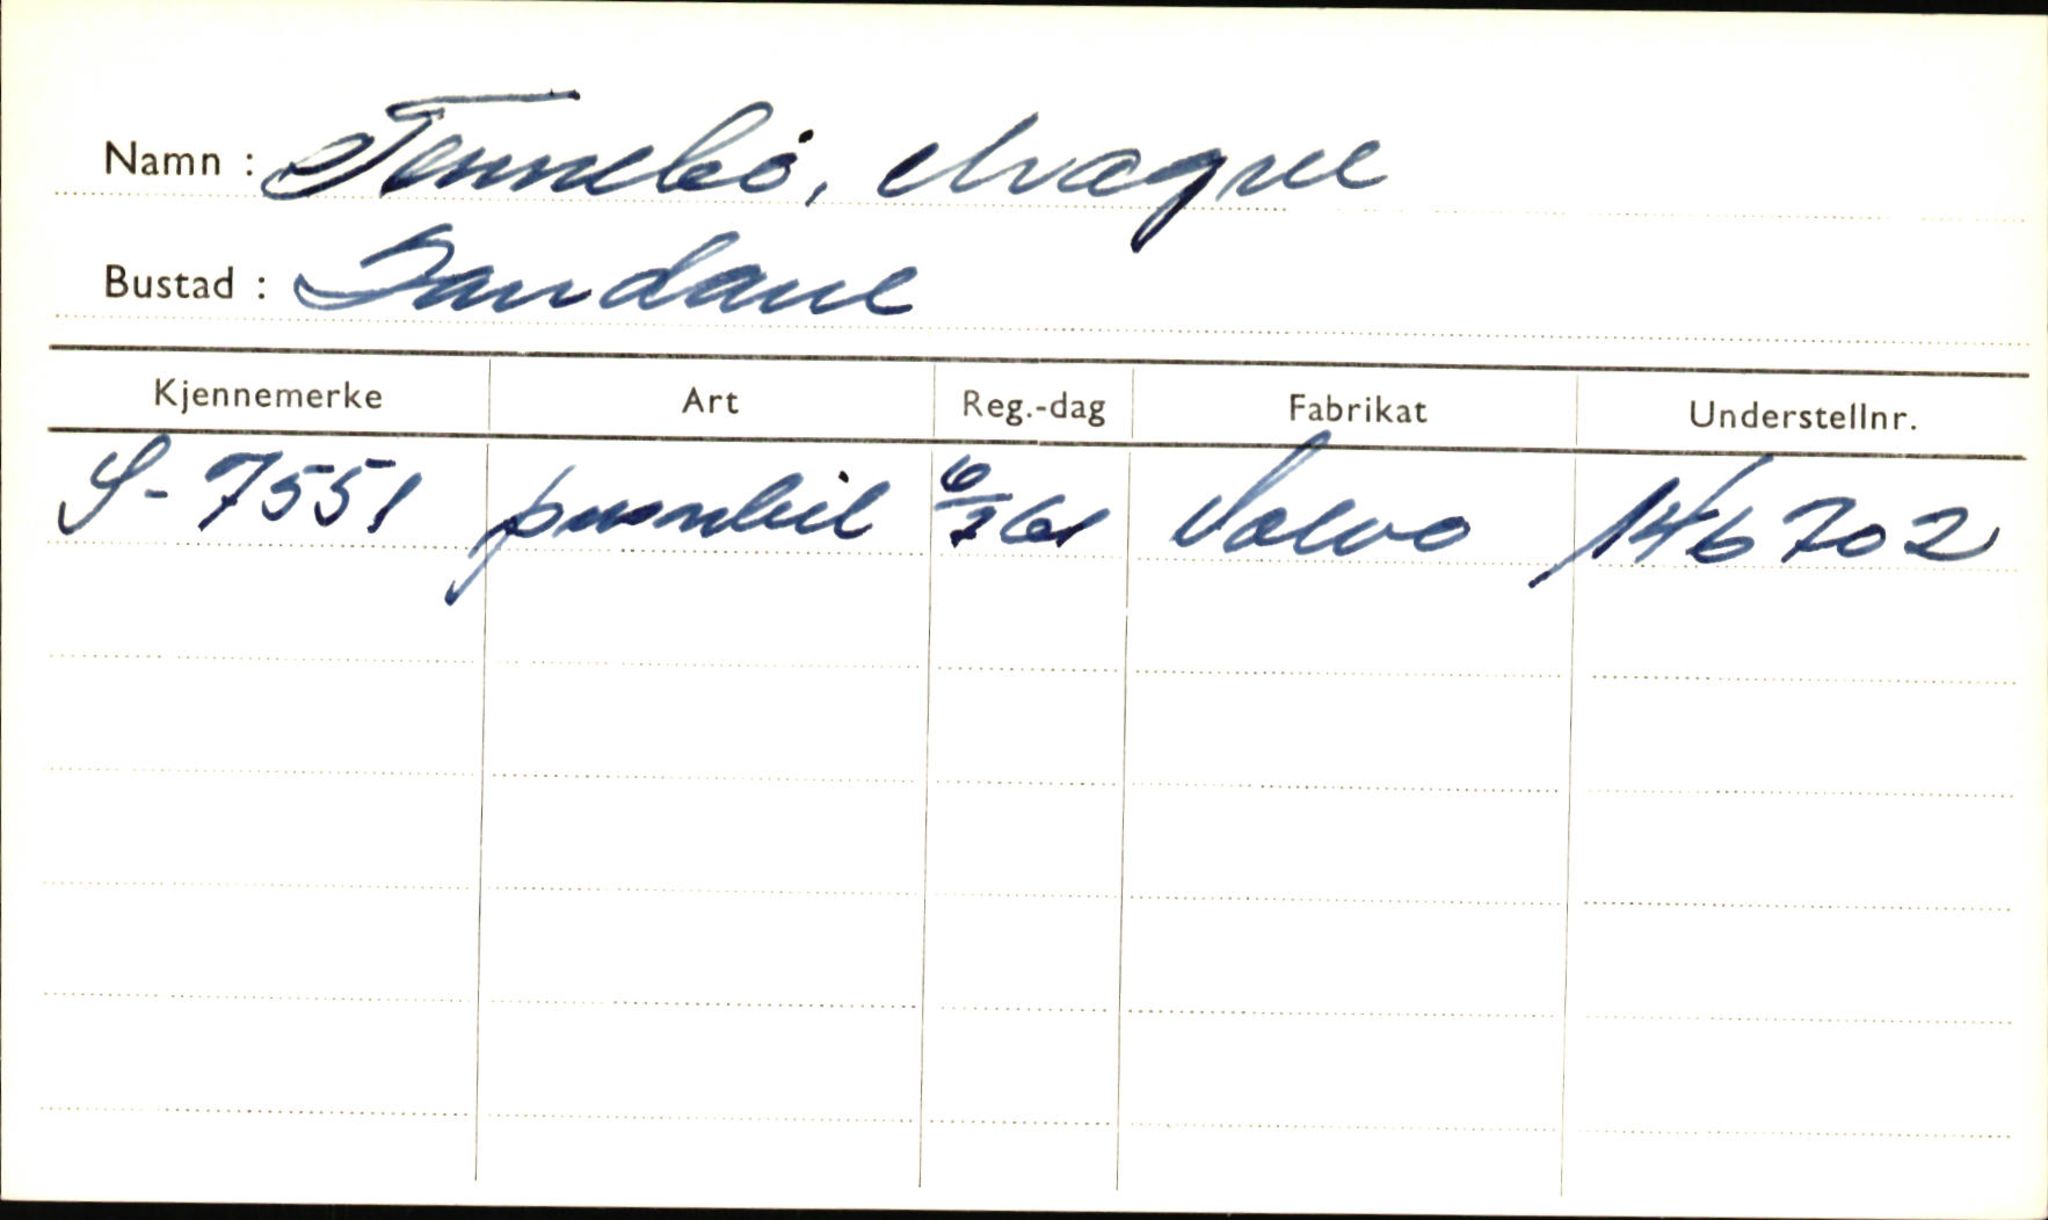 Namn : Tennebö, Magne
Bustad : Sandane
Kjennemerke Art Reg.-dag Fabrikat Understellnr.
S-7551 personbil 6/7 61 Volvo 146702